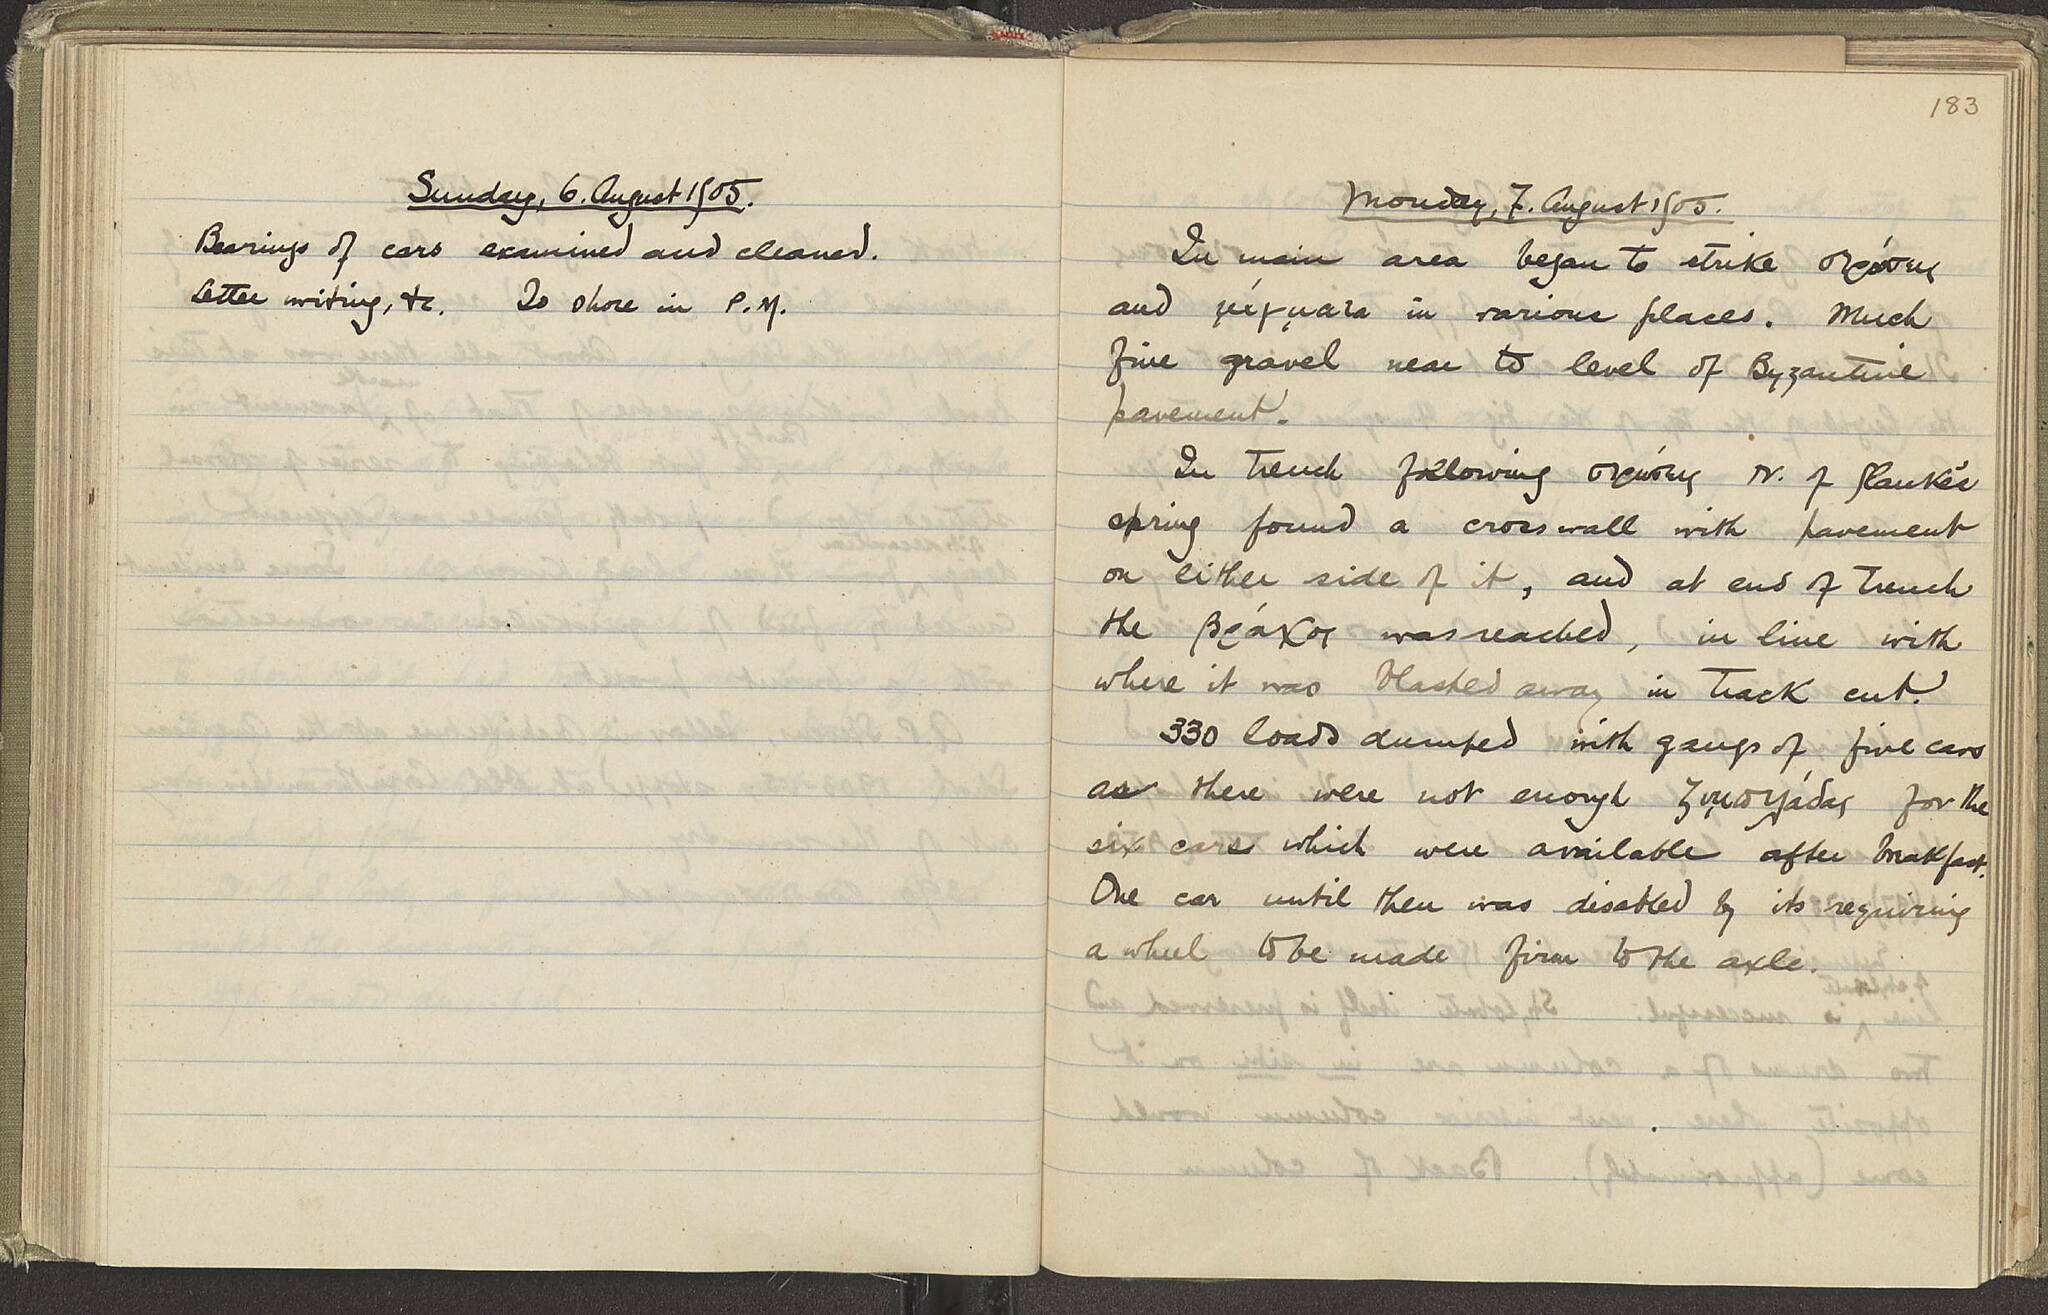 Sunday, 6. August 1905.
Bearings of cars examined and cleaned.
Letter writing, &c. To shore in P.M.
183
Monday, 7. August 1905.
In main area began to strike στρῶσις
and in various places. Much
fine gravel near to level of Byzantine
pavement.
In trench following στρῶσις N. of Glauke's
spring found a crosswall with pavement
on either side of it, and at end of trench
the βράχος was reached, in line with
where it was blasted away in track cut.
330 loads dumped with gangs of five cars
as there were not enough for the
six cars which were available after breakfast.
One car until then was disabled by its requiring
a wheel to be made firm to the axle.